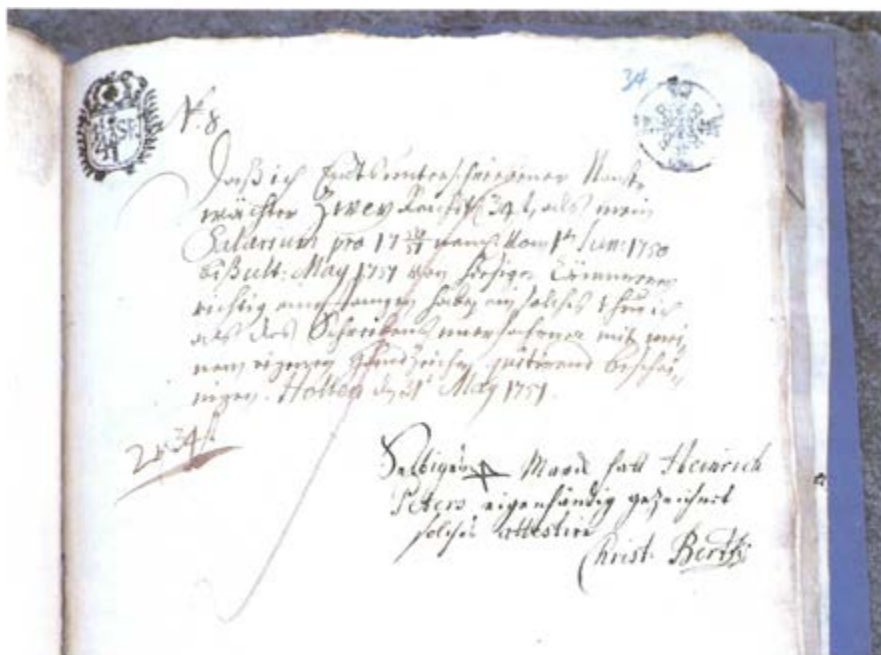 34
N. 8
Daß ich Endtsunterschriebener Nacht-
wächter Zwey Rausth. 34 st, als mein
Salarium pro 17 50/51 vom 1ten Jun: 1750
biß ult: May 1751 von hiesiger
richtig empfangen habe, ein solches thue ich
als des Schreibens unerfahrener mit mei-
nem eigenen Handzeichen quitirend beschei-
nigen. Holten d. 31t May 1751.
2 r. 34 st
Selbiges Marck hatt Heinrich
Peters eigenhändig gezeichnet
solches attestire
Christ.